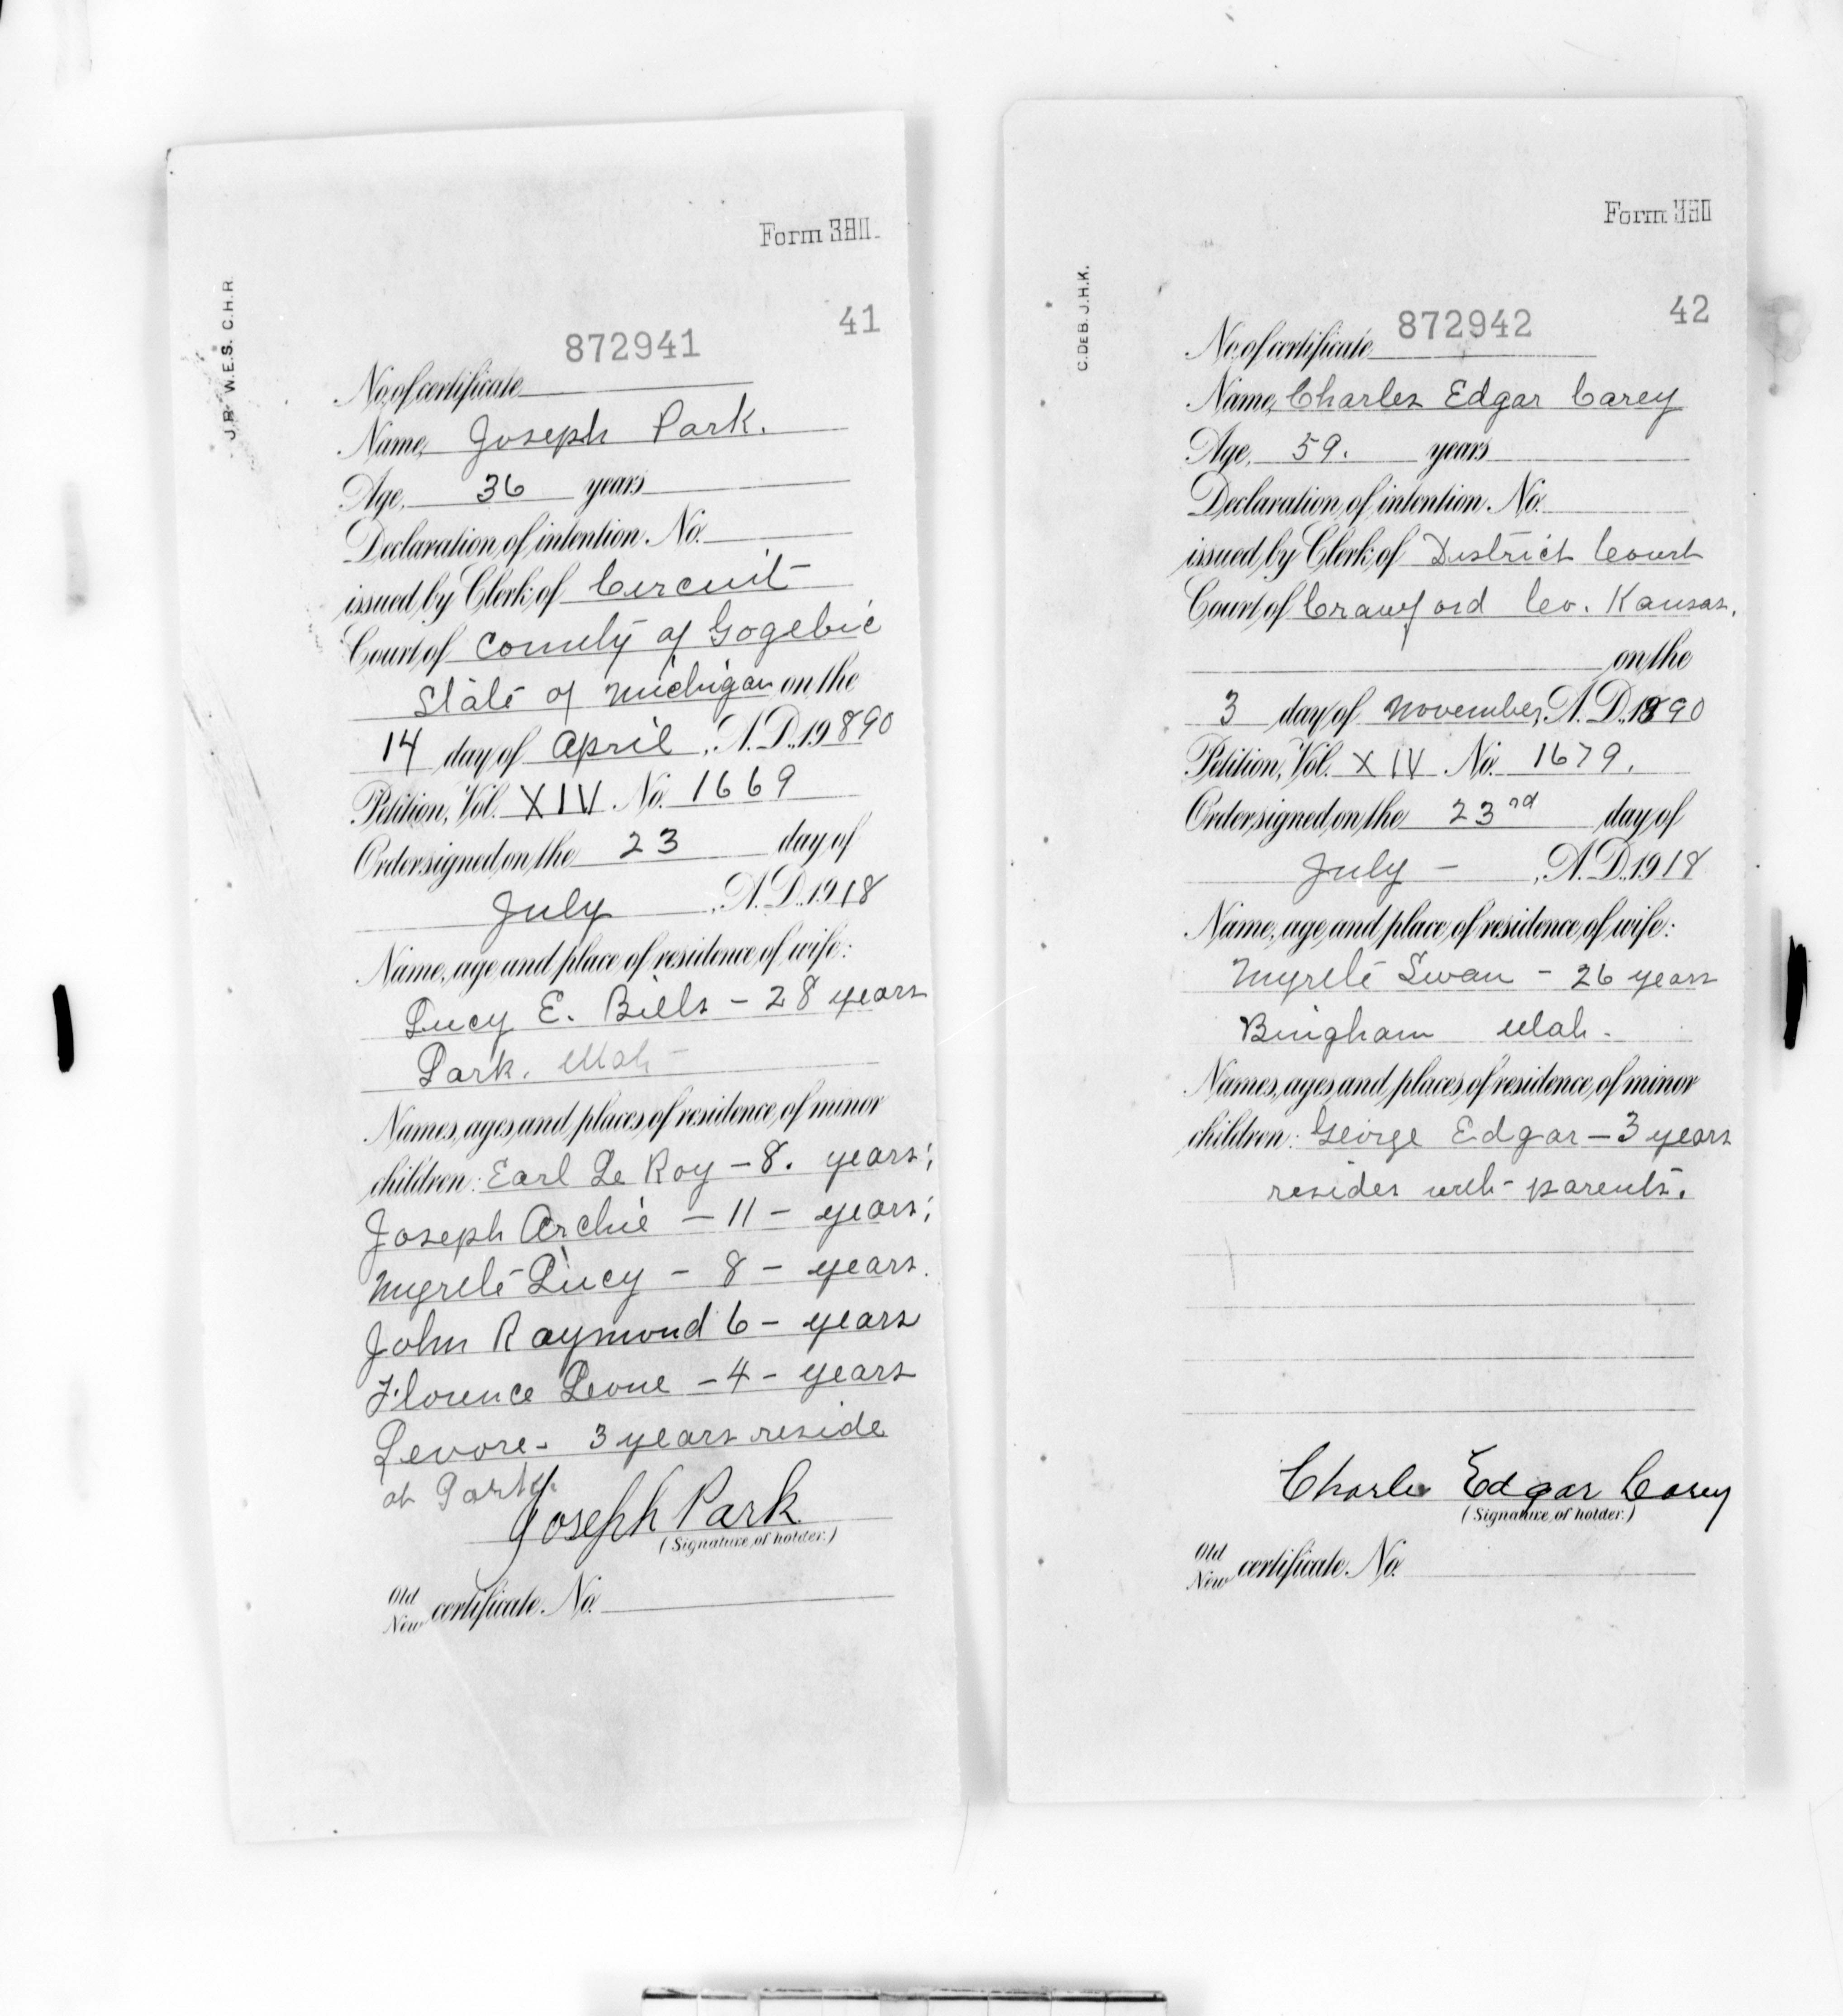 Form 380.
J.B. W.E.S. C.H.R.
872941 41
No. of certificate
Name, Joseph Park.
Age, 36 years
Declaration of intention No.
issued by Clerk of Circuit
Court of County of Gogebic
State of Michigan on the
14 day of April, A.D. 19890
Petition, Vol. XIV No. 1669
Order signed on the 23 day of
July, A.D. 1918
Name, age and place of residence of wife:
Lucy E. Bills - 28 years
Park. Utah -
Names, ages and places of residence of minor
children: Earl Le Roy - 8. years;
Joseph Archie - 11 - years;
Myrtle Lucy - 8 - years.
John Raymond 6 - years
Florence Leone - 4 - years
Levore - 3 years reside
at Park.
Joseph Park
(Signature of holder.)
Old
New certificate No.
Form
C.DEB. J.H.K.
872942 42
No. of certificate
Name, Charles Edgar Carey
Age, 59. years
Declaration of intention No.
issued by Clerk of District Court
Court of Crawford Co. Kansas.
on the
3 day of November, A.D. 1890
Petition, Vol. XIV No. 1679.
Order signed on the 23rd day of
July -, A.D. 1918
Name, age and place of residence of wife:
Myrtle Swan - 26 years
Bingham Utah.
Names, ages and places of residence of minor
children: George Edgar - 3 years
resides with parents.
Charles Edgar Carey
(Signature of holder.)
Old
New certificate No.